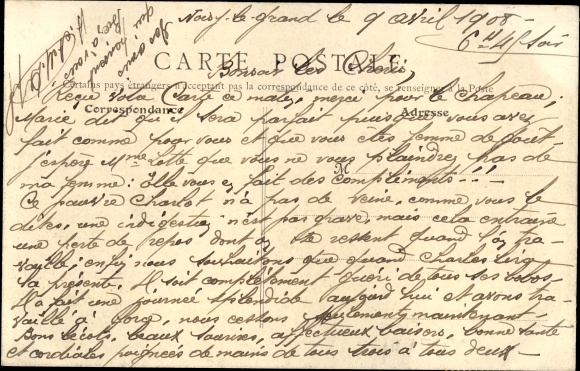 Noisy-le-grand le 9 avril 1908-
6H 45 soir
CARTE POSTALE
Bonsoir les Chéris,
Certains pays étrangers n'acceptant pas la correspondance de ce côté, se renseigner à la Poste
Reçu votre Carte ce matin, merci pour le chapeau,
Correspondance Adresse
Marie dit qu'il sera parfait puisque vous avez
fait comme pour vous et que vous êtes femme de goût
j'espère Mme que vous ne vous plaindrez pas de
M
ma femme: Elle vous en fait des Compliments!!!-
Ce pauvre Charlot n'a pas de veine, comme vous le
dites, une indigestion n'est pas grave, mais cela entraîne
une perte de repos dont on se ressent quand l'on tra-
vaille; enfin nous souhaitons que quand Charles lira
la présente, Il soit complètement guéri de tous ses bobos.
Il a fait une journée splendide aujourd'hui et avons tra-
vaillé à force, nous cessons seulement maintenant-
Bons bécots, beaux sourires, affectueux baisers, bonne santé
et cordiales poignées de mains de tous trois à tous deux-